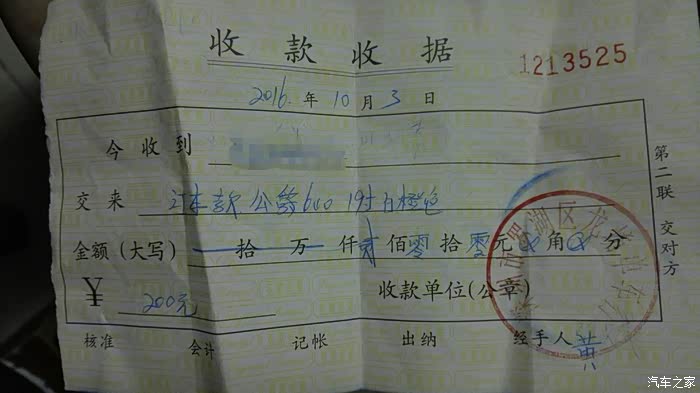 收款收据
1213525
2016.年10月3日
今收到
交来 订车款 公爵600 19寸白橙色
金额(大写) 拾 万 仟 贰佰零拾零元0角0分
¥ 200元 收款单位(公章)
核准 会计 记帐 出纳 经手人 黄
第二联 交对方
汽车之家